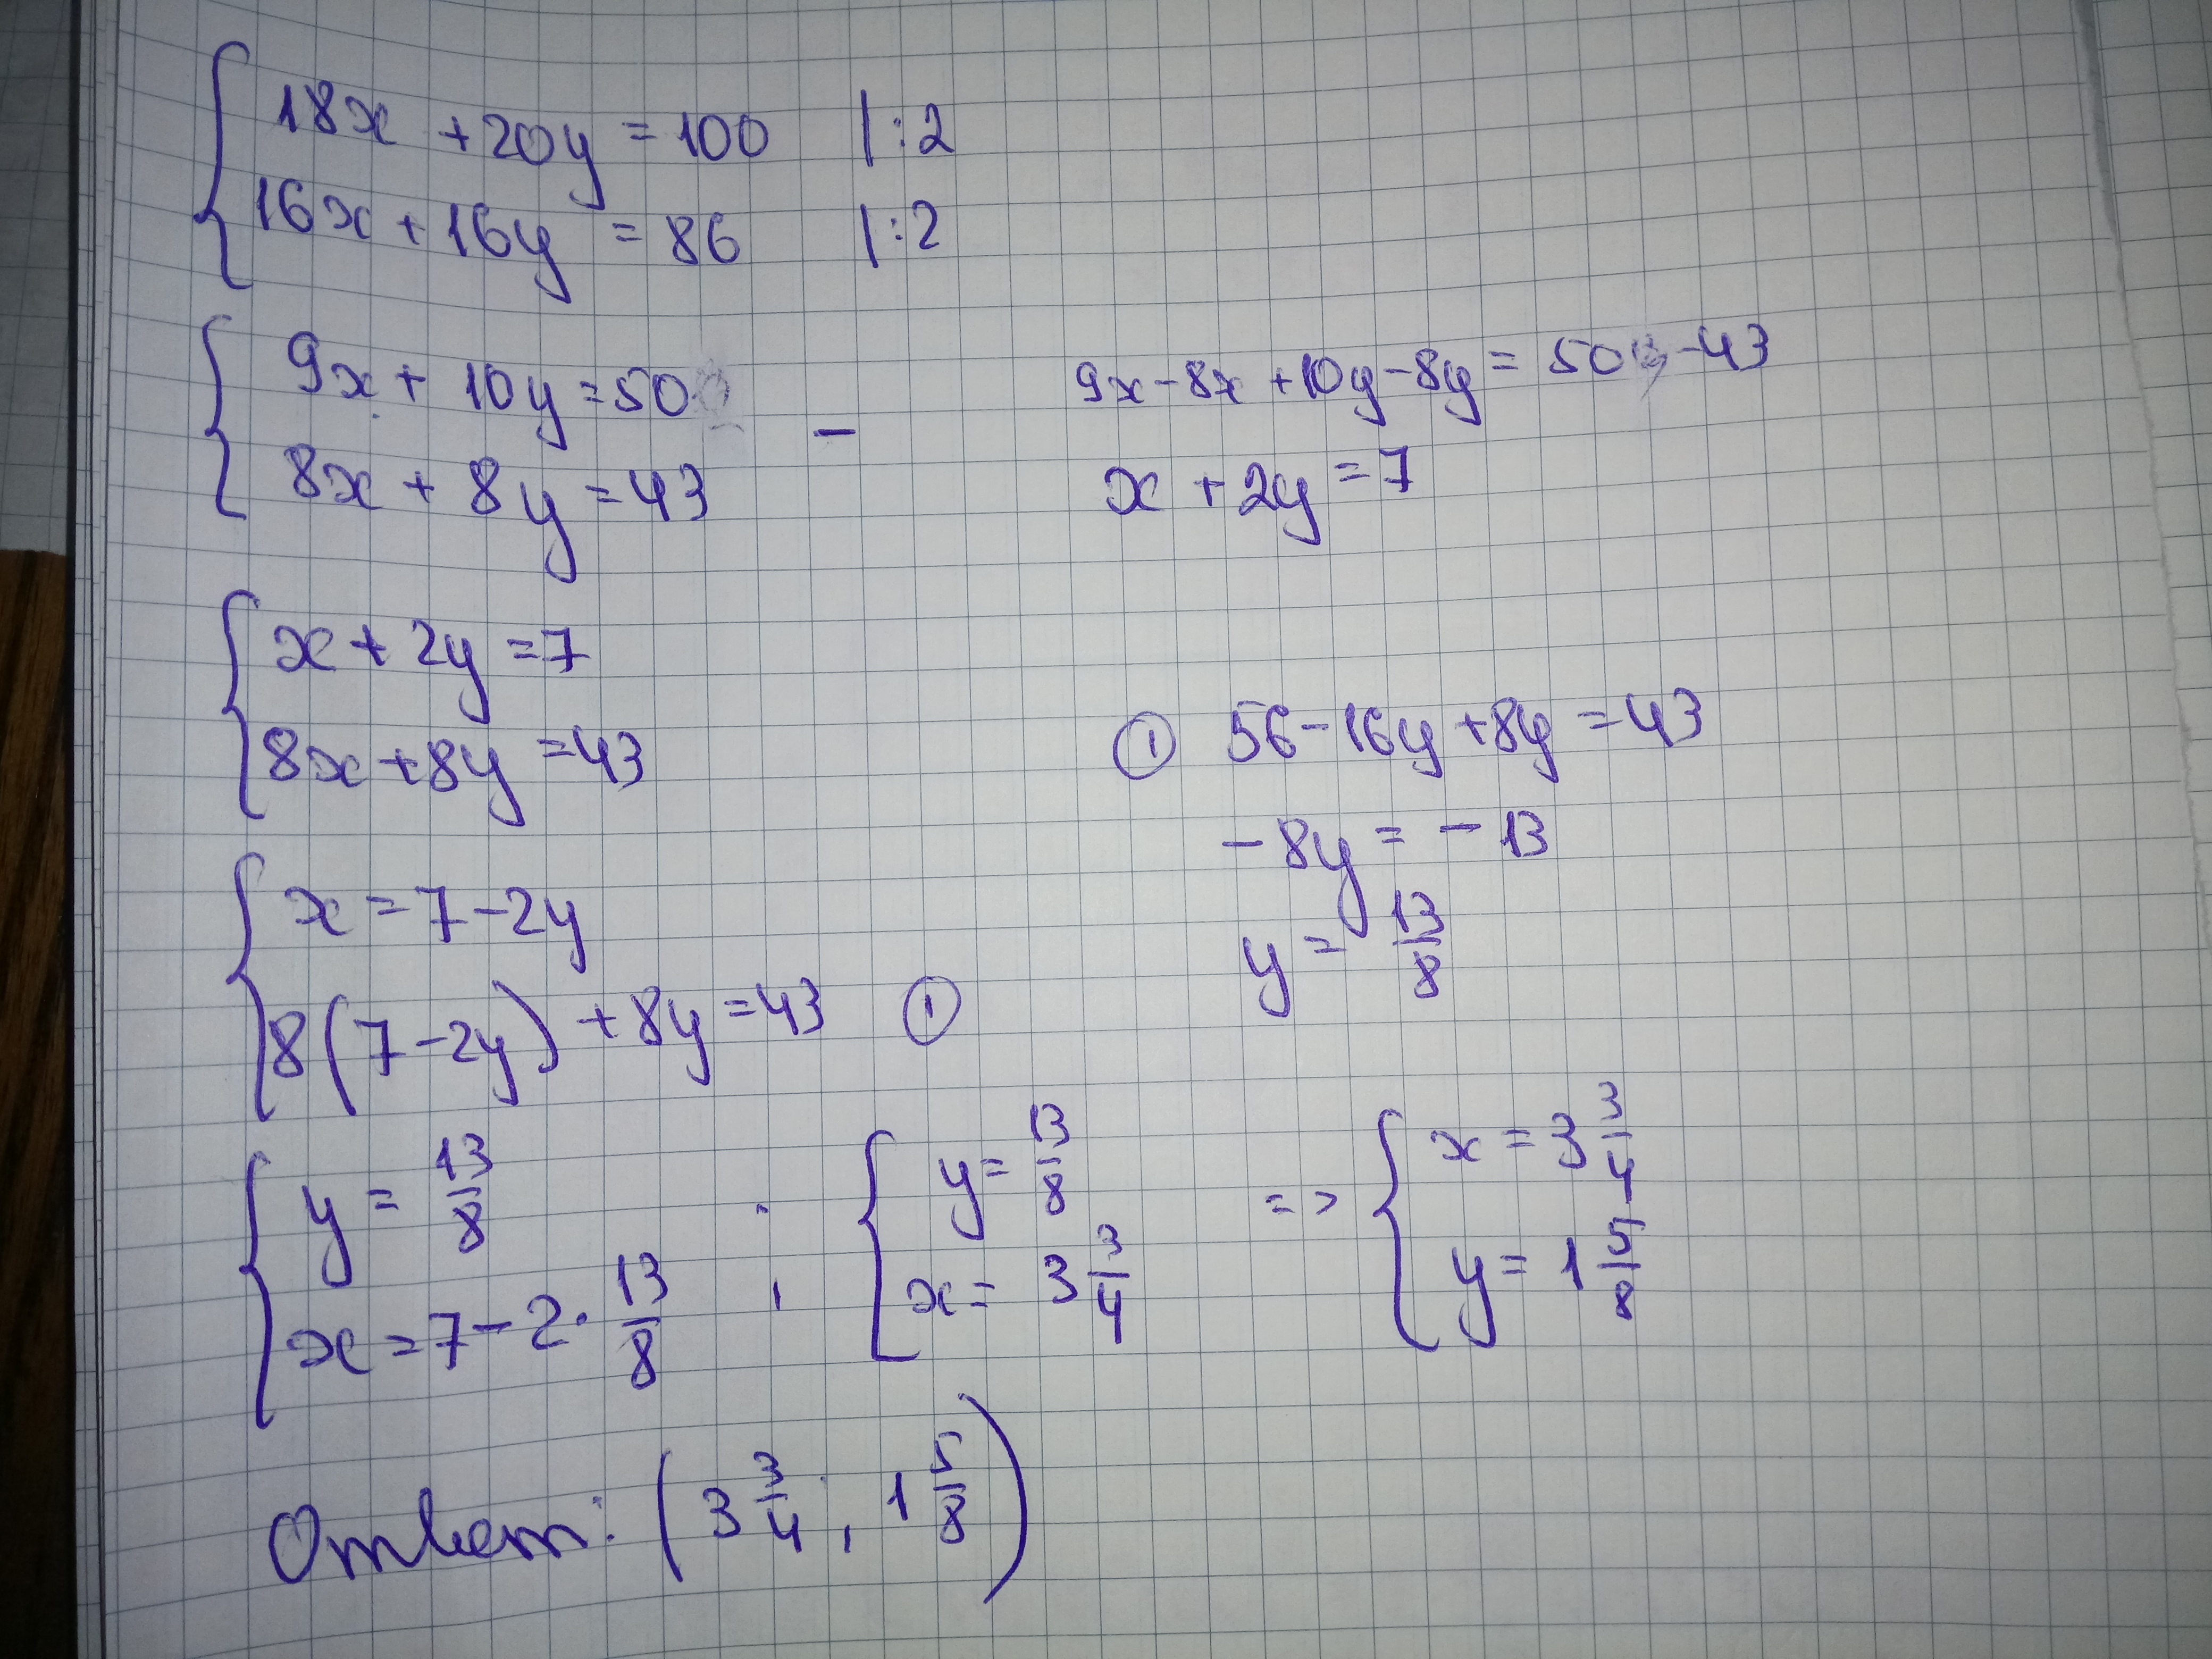 18x + 20y = 100 | :2
16x + 16y = 86 | :2
9x + 10y = 50
8x + 8y = 43
−
9x − 8x + 10y − 8y = 50 − 43
x + 2y = 7
x + 2y = 7
8x + 8y = 43
① 56 − 16y + 8y = 43
− 8y = − 13
y = 13/8
x = 7 − 2y
8(7 − 2y) + 8y = 43 ①
y = 13/8
x = 7 − 2 · 13/8 ;
y = 13/8
x = 3 3/4
=> x = 3 3/4
y = 1 5/8
Ответ: (3 3/4 , 1 5/8)